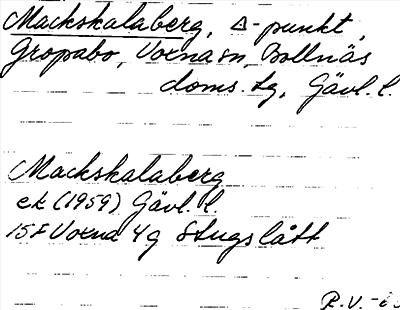 Mackskalaberg, △-punkt,
Gropabo, Voxna sn, Bollnäs
doms. lg, Gävl. l.
Mackskalaberg
ek (1959) Gävl. l.
15F Voxna 4g Stugslått
R.V.